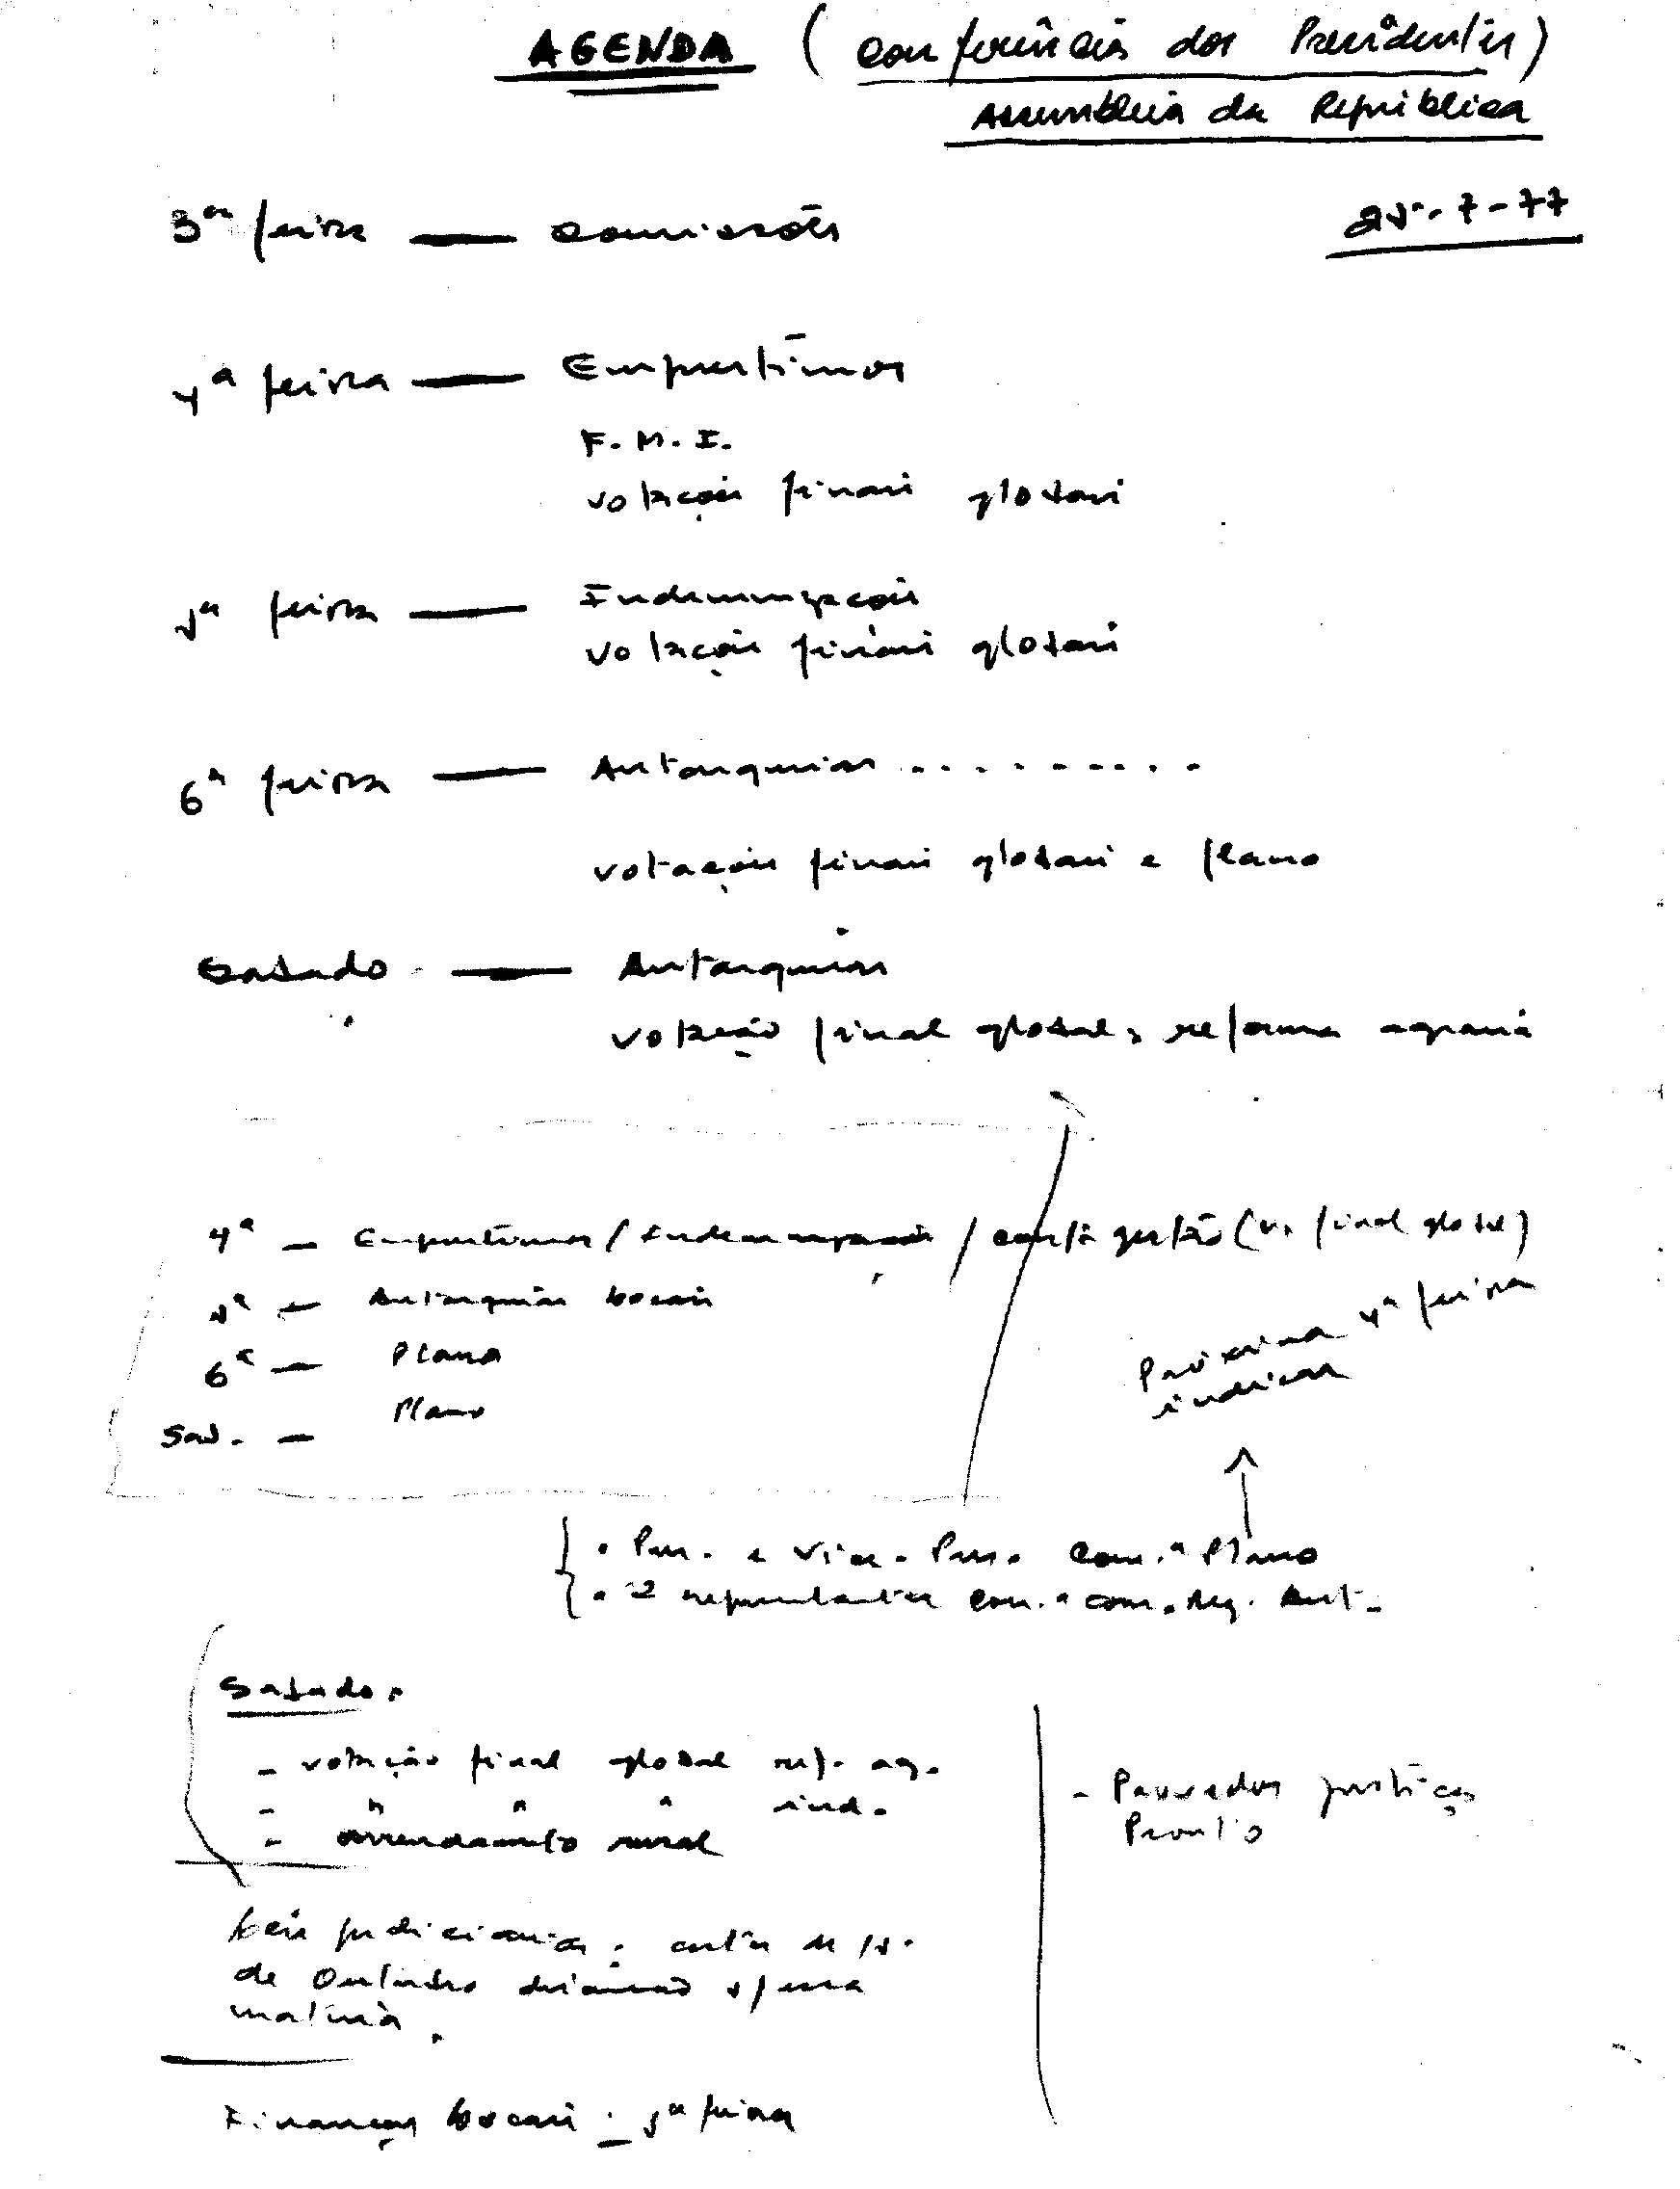 AGENDA (Conferência dos Presidentes)
Assembleia da República
25-7-77
3ª feira — comissões
4ª feira — Empréstimos
F.M.I.
votações finais globais
5ª feira — Indemnizações
votações finais globais
6ª feira — Autarquias .........
votações finais globais e plano
Sabado — Autarquias
votação final global, reforma agrária
4ª — Empréstimos / Indemnizações / gestão (v. final global)
5ª — Autarquias Locais
6ª — Plano
Sab. — Plano
Próxima 4ª feira
indicar
{ . Pres. e Vice-Pres. Com.ª Plano
. 2 representantes com. Reg. Aut.
Sabado.
- votação final global ref. ag.
- " " " ind.
- arrendamento rural
- Provedor justiça
Pronto
Leis judiciárias: de 15
de Outubro s/ essa
matéria.
Finanças Locais: 5ª feira